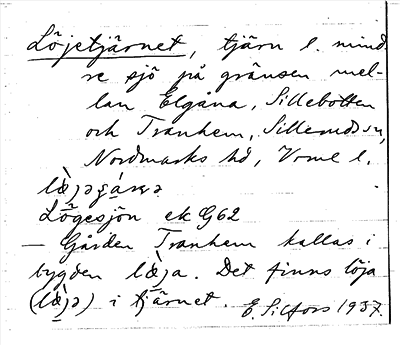 Löjetjärnet, tjärn l. mind
re sjö på gränsen mel-
lan Elgåna, Sillebotten
och Tranhem, Sillerudssn,
Nordmarks hd, Vrml l.
Lögesjön ek G62
— Gården Tranhem kallas i
bygden lö̀ja. Det finns löja
i tjärnet. E. Silfors 1937.